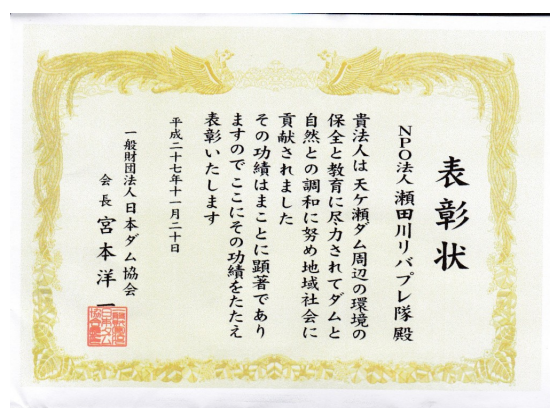 表彰状
NPO法人瀬田川リバプレ隊 殿
貴法人は天ケ瀬ダム周辺の環境の
保全と教育に尽力されてダムと
自然との調和に努め地域社会に
貢献されました
その功績はまことに顕著であり
ますのでここにその功績をたたえ
表彰いたします
平成二十七年十一月二十日
一般財団法人日本ダム協会
会長 宮本洋一